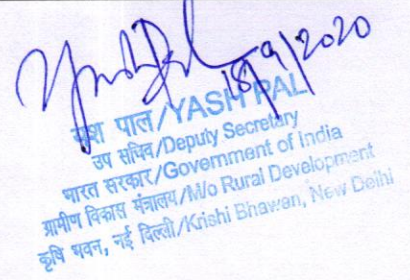 18/9/2020
यश पाल/YASH PAL
उप सचिव/Deputy Secretary
भारत सरकार/Government of India
ग्रामीण विकास मंत्रालय/M/o Rural Development
कृषि भवन, नई दिल्ली/Krishi Bhawan, New Delhi